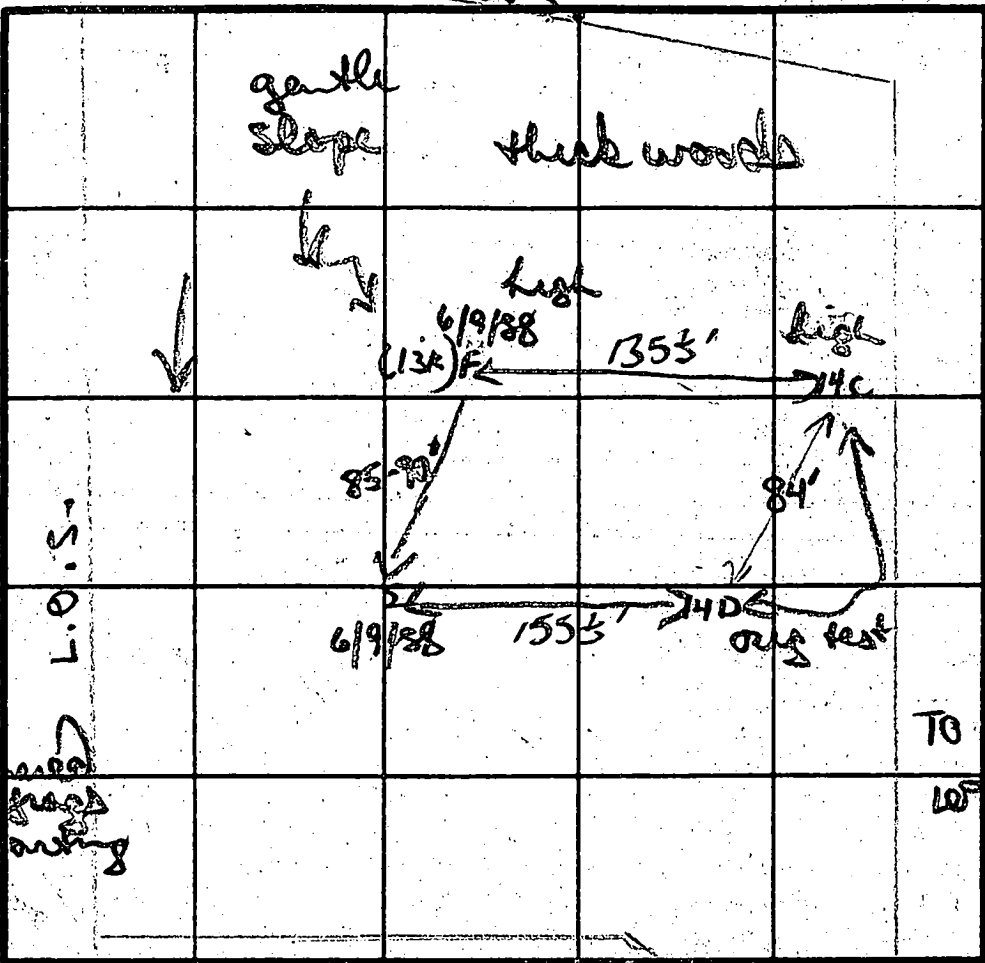 gentle
slope
thick woods
high
6/9/88
(13K) F
135½'
high
14C
85-90'
84'
L.O.S.
6/9/88
155½'
14D
orig test
TO